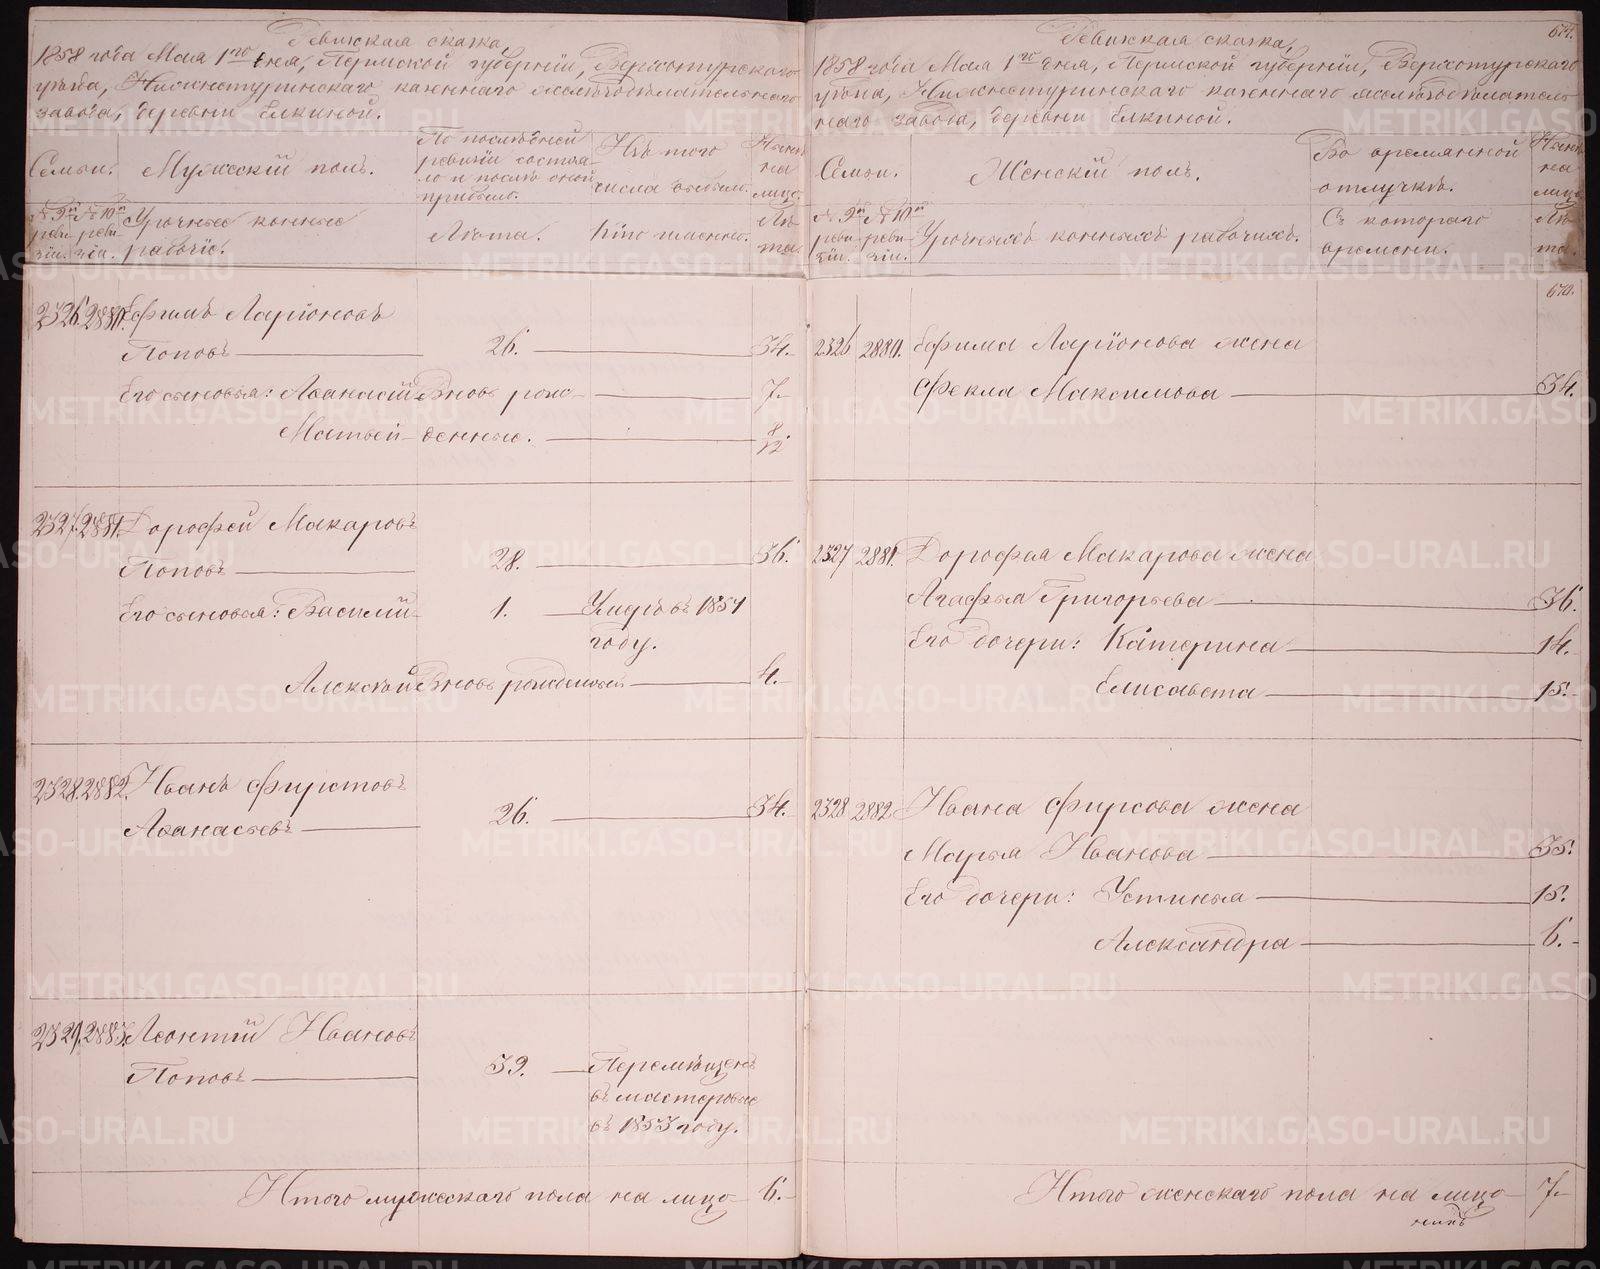 Ревижская сказка,
1858 года Мая 1го дня, Пермской губерніи, Верхотурскаго
уѣзда, Нижнетуринскаго казеннаго желѣзодѣлательнаго
завода, деревни Елкиной.
Семьи.
Мужескій полъ.
По послѣдней ревизіи состояло и послѣ оной прибыло.
Изъ того числа выбыло.
Нынѣ на лицо.
№ 9й ревизіи.
№ 10й ревизіи.
Урочные конные рабочіе.
Лѣта.
Кто именно.
Лѣта.
2326. 2880. Ефимъ Ларіоновъ
Поповъ 26. 34.
Его сыновья: Аѳанасій Вновь рож- 7.
Матвей денные. 8/12
2327. 2881. Дорофей Макаровъ
Поповъ 28. 36.
Его сыновья: Василій 1. Умеръ въ 1851
году.
Алексѣй Вновь рожденный 4.
2328. 2882. Иванъ Фирстовъ
Аѳанасьевъ 26. 34.
2329. 2883. Леонтій Ивановъ
Поповъ 39. Перемѣщенъ
въ мастеровые
въ 1853 году.
Итого мужескаго пола на лицо 6.
674.
Ревижская сказка,
1858 года Мая 1го дня, Пермской губерніи, Верхотурскаго
уѣзда, Нижнетуринскаго казеннаго желѣзодѣлатель-
наго завода, деревни Елкиной.
Семьи.
Женскій полъ.
Во временной отлучкѣ.
Нынѣ на лицо.
№ 9й ревизіи.
№ 10й ревизіи.
Урочныхъ конныхъ рабочихъ.
Съ котораго времени.
Лѣта.
2326 2880. Ефима Ларіонова жена
Фекла Максимова 34.
2327 2881. Дорофея Макарова жена
Агафья Григорьева 36.
Его дочери: Катерина 14.
Елисавета 15.
2328 2882 Ивана Фирсова жена
Марья Иванова 35.
Его дочери: Устинья 15.
Александра 6.
Итого женскаго пола на лицо 7.
METRIKI.GASO-URAL.RU